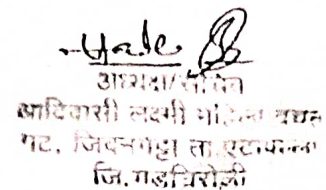 अध्यक्ष/सचिव
आदिवासी लक्ष्मी महिला बचत
गट, जिवनगट्टा ता. एटापल्ली
जि. गडचिरोली